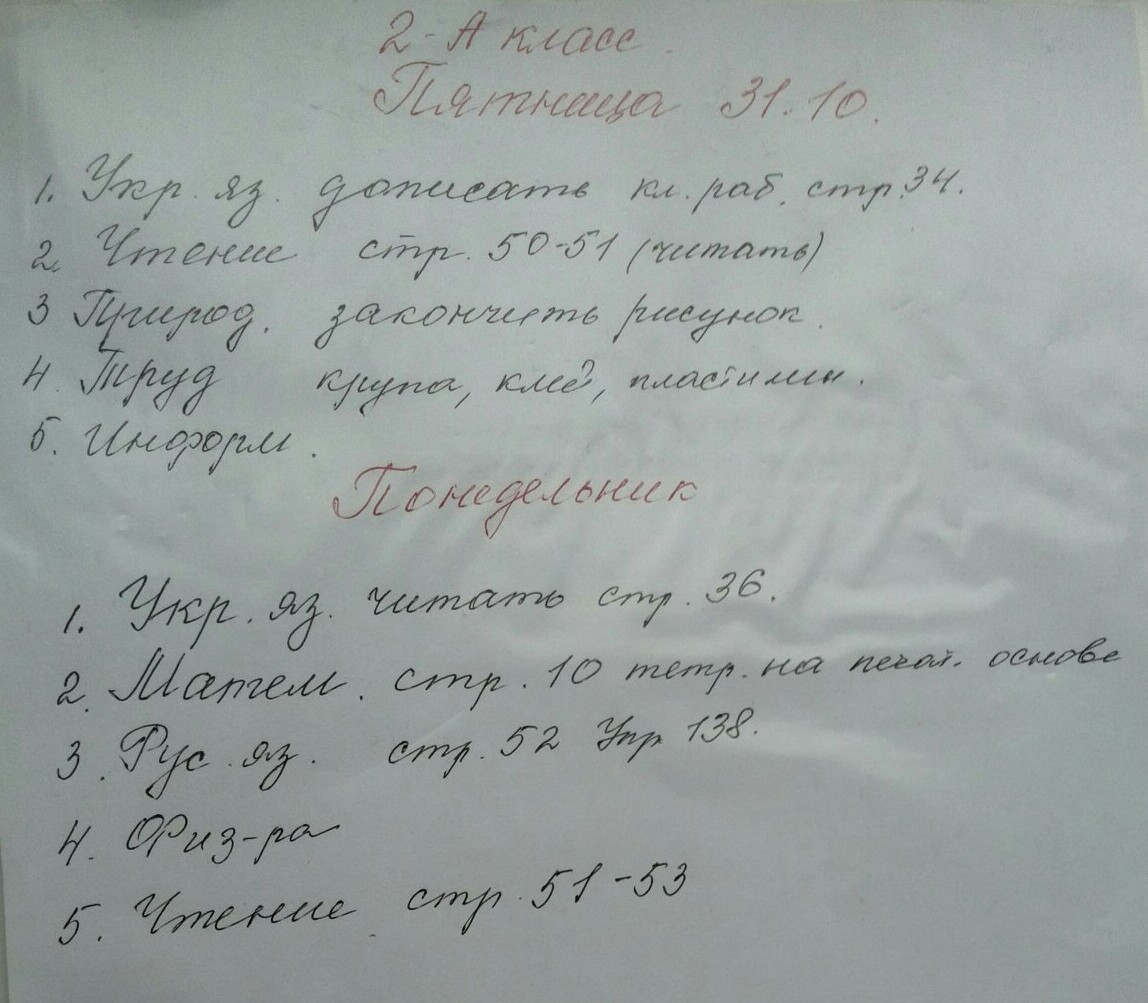 2-А класс.
Пятница 31.10.
1. Укр. яз. дописать кл. раб. стр. 34.
2. Чтение стр. 50-51 (читать)
3 Природ. закончить рисунок.
4. Труд крупа, клей, пластилин.
5. Информ.
Понедельник
1. Укр. яз. читать стр. 36.
2. Матем. стр. 10 тетр. на печат. основе
3. Рус. яз. стр. 52 Упр 138.
4. Физ-ра
5. Чтение стр. 51-53